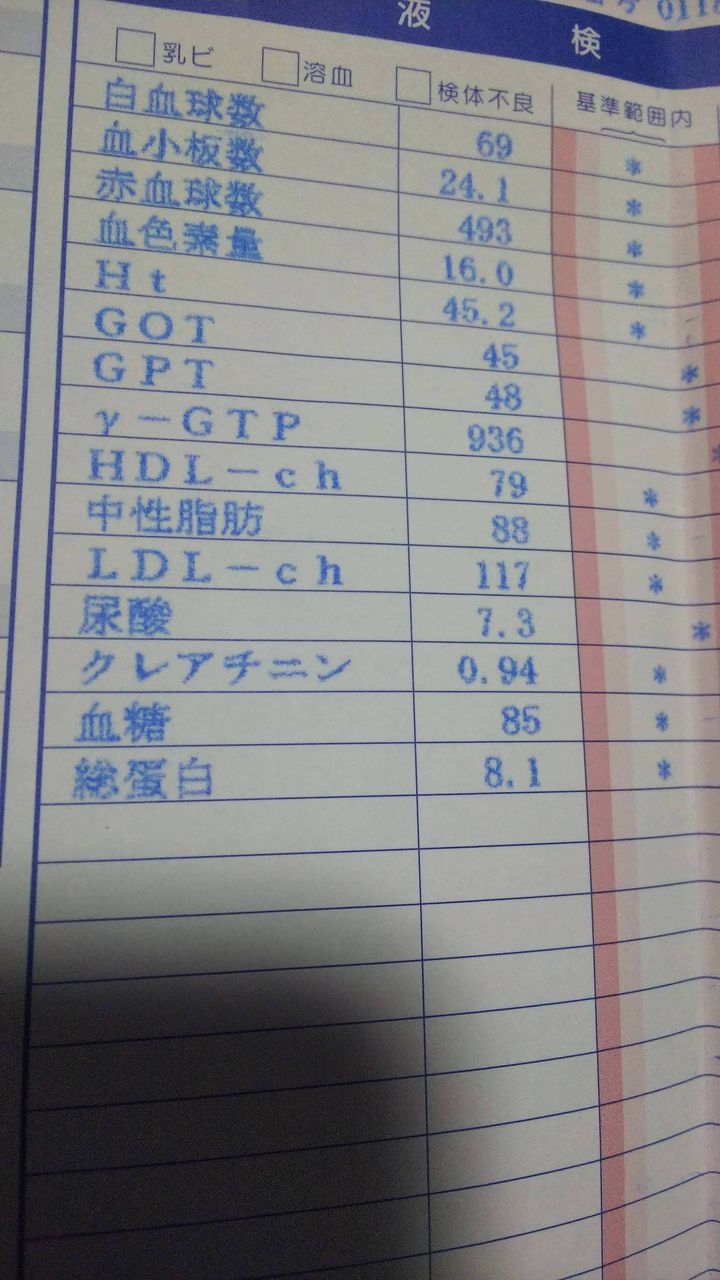 液 検
乳ビ 溶血 検体不良 基準範囲内
白血球数 69 *
血小板数 24.1 *
赤血球数 493 *
血色素量 16.0 *
Ht 45.2 *
GOT 45 *
GPT 48 *
γ-GTP 936 *
HDL-ch 79 *
中性脂肪 88 *
LDL-ch 117 *
尿酸 7.3 *
クレアチニン 0.94 *
血糖 85 *
総蛋白 8.1 *